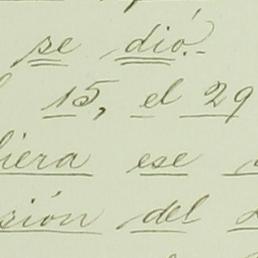 se dió.-
15, el 29
iera ese
sión del